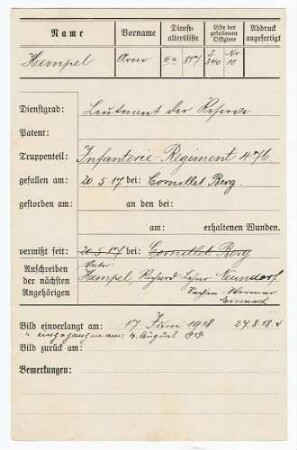 Name Vorname Dienst-altersliste Liste der gefallenen Offiziere Abdruck angefertigt
Hempel Arno IIa 887 S. 340 Nr 10
Dienstgrad: Leutnant der Reserve
Patent:
Truppenteil: Infanterie-Regiment 476.
gefallen am: 20.5.17 bei: Cornillet Berg.
gestorben am: an den bei:
am: erhaltenen Wunden.
vermißt seit: 20.5.17 bei: Cornillet Berg
Anschreiben Vater
der nächsten Hempel, Richard, Neundorf
Angehörigen Sachsen-Weimar
Eisenach
Bild einverlangt am: 17. Juni 1918 27.8.18.
" eingegangen am: 4. August 1919.
Bild zurück am:
Bemerkungen: